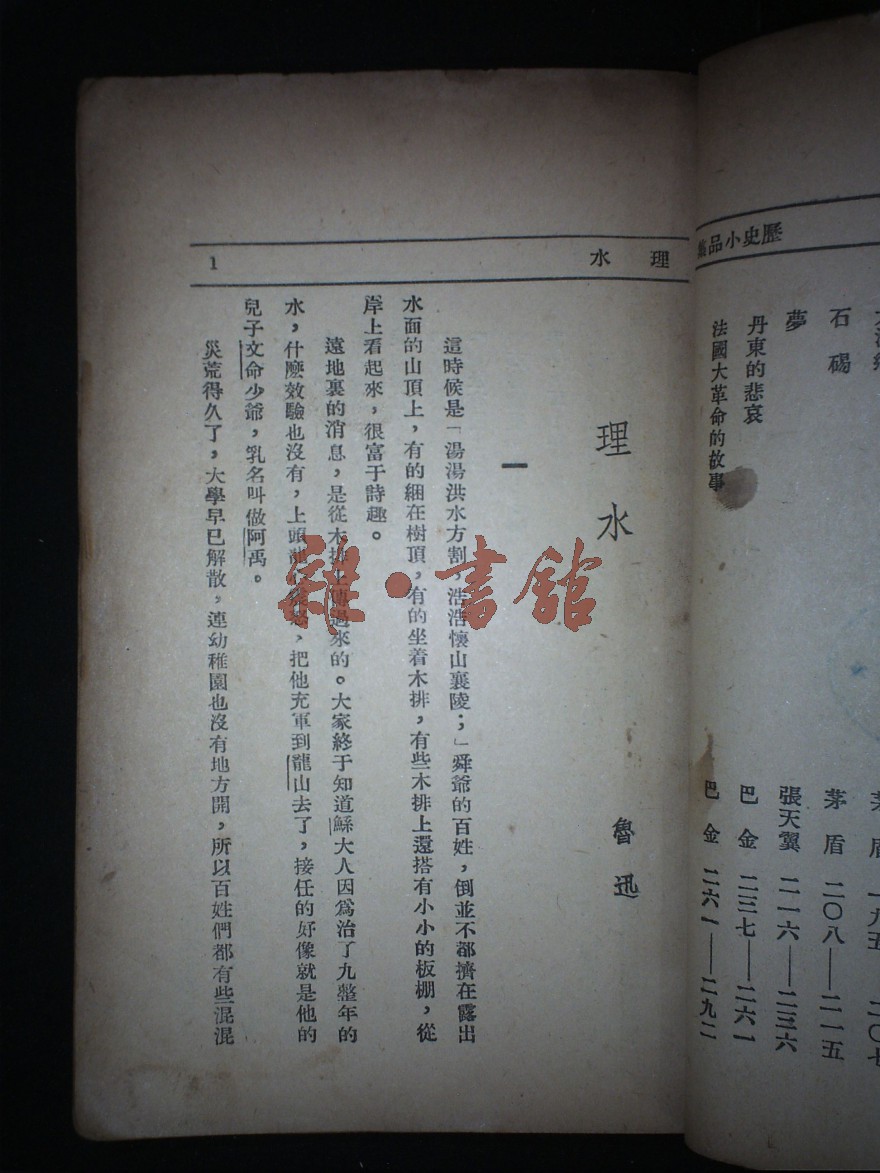 歷史小品集
石碣 茅盾 二〇八——二一五
夢 張天翼 二一六——二三六
丹東的悲哀 巴金 二三七——二六一
法國大革命的故事 巴金 二六一——二九二
理水
1
理水
魯迅
一
這時候是「湯湯洪水方割，浩浩懷山襄陵；」舜爺的百姓，倒並不都擠在露出
水面的山頂上，有的綑在樹頂，有的坐着木排，有些木排上還搭有小小的板棚，從
岸上看起來，很富于詩趣。
遠地裏的消息，是從木排上傳過來的。大家終于知道鯀大人因爲治了九整年的
水，什麽效驗也沒有，上頭龍心震怒，把他充軍到龍山去了，接任的好像就是他的
兒子文命少爺，乳名叫做阿禹。
災荒得久了，大學早已解散，連幼稚園也沒有地方開，所以百姓們都有些混混
雜·書館